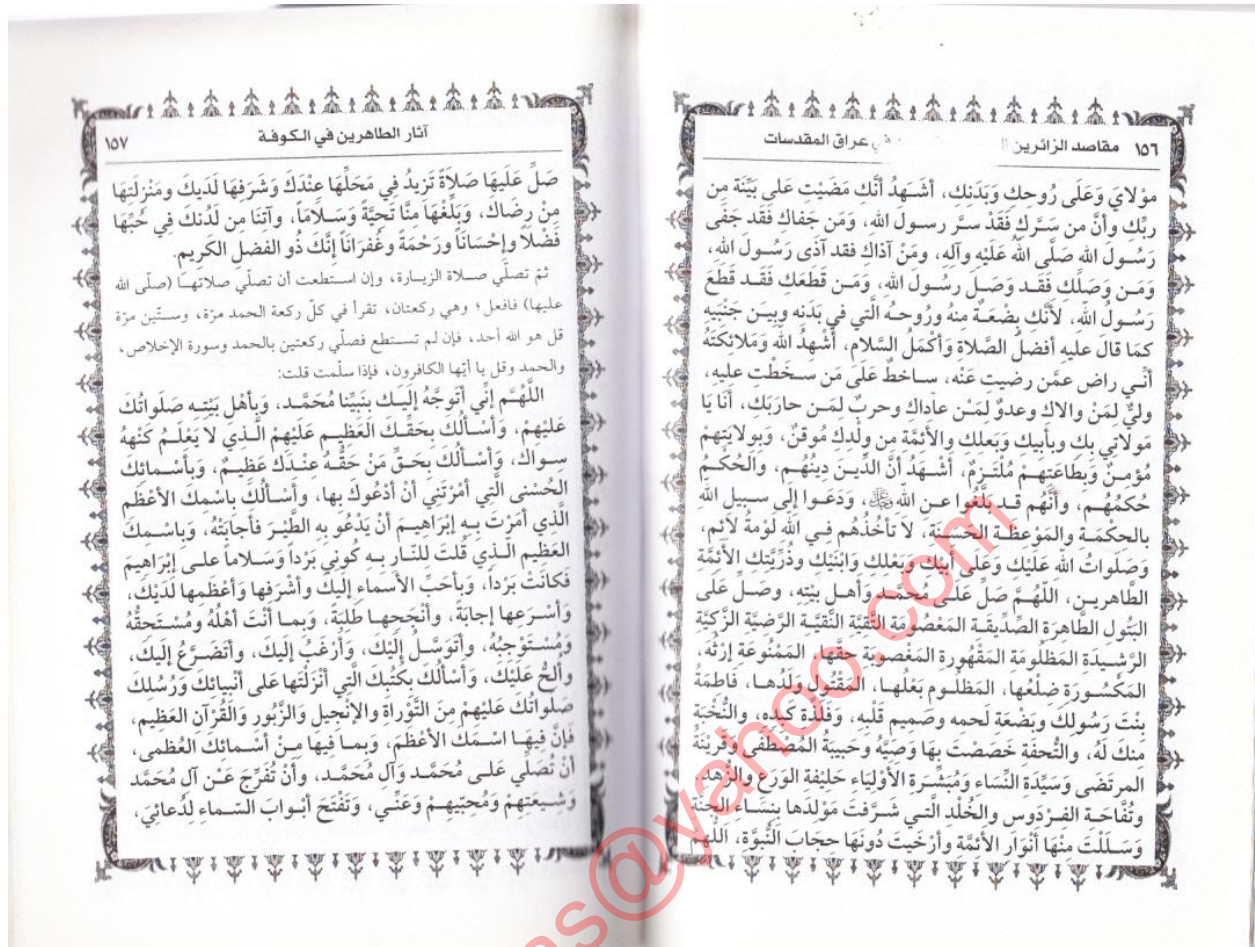 ١٥٦ مقاصد الزائرين في عراق المقدسات
موْلايَ وَعَلَى رُوحِكِ وَبَدَنِكِ، أشــهدُ أنَّكِ مَضَيْتِ عَلى بَيِّنَة مِن
ربِّكِ وأنَّ من سَــرَّكِ فَقَدْ سرَّ رســولَ الله، وَمَن جَفاكِ فقد جَفَى
رَسُــولَ الله صَلَّى اللهُ عَلَيْهِ وآله، ومَنْ آذاكِ فقد آذى رَسُــولَ الله،
وَمَــن وَصَلَكِ فَقَــد وَصَلَ رسُــولَ الله، وَمَــن قَطَعَكِ فَقَــد قَطَعَ
رَسُــولَ الله، لأَنَّكِ بِضعَــةٌ مِنهُ ورُوحــهُ الَّتي في بَدَنه وبيــن جَنْبَيهِ
كمَا قالَ عليهِ أفضلُ الصَّلاةِ وَأكْمَلُ السَّلامِ، أُشهدُ اللهَ وَمَلائِكَتَهُ
أنِّــي راضٍ عمَّن رضيتِ عَنْه، ســاخطٌ عَلَى مَن سَــخَطْتِ عليهِ،
وليٌّ لِمَنْ والاكِ وعدوٌ لِمَــنْ عاداكِ وحربٌ لِمَــن حارَبَكِ، أنَا يَا
مَولاتي بِكِ وبأبيكِ وَبَعلِكِ والأئمَّة من ولْدِكِ مُوقنٌ، وَبِولايَتِهمْ
مُؤْمنٌ وَبِطاعَتهِــمْ مُلْتَــزِمٌ، أشْــهَدُ أنَّ الدِّيــن دِينُهُــم، والحُكْــمُ
حُكمُهُــم، وأنَّهُم قــد بَلَّغُوا عــن الله ﷻ، وَدَعَــوا إلى ســبيل اللهِ
بالحكمَــة والمَوعظَــة الحَسَــنَة، لاَ تأخُذُهُم فــي اللهِ لَومَةُ لائم،
وَصَلَواتُ اللهِ عَلَيْكِ وَعَلَى أبيْكِ وبَعْلكِ وابْنَيْكِ وذُرِّيَّتكِ الأئمَّة
الطَّاهريــن، اللّهُــمَّ صَلِّ عَلَــى مُحَمَّــد وأهــل بَيْتِه، وَصَــلِّ عَلى
البَتُول الطَّاهرَة الصِّدِّيقَــة المَعْصُومَة التَّقيَّة النَّقيَّــة الرَّضيَّة الزَّكيَّة
الرَّشــيدَة المَظلُومَة المَقْهُورَة المَغْصُوبَة حقَّها، المَمْنُوعَة إرْثُه،
المَكْسُورَة ضِلْعُها، المَظْلُــومِ بَعْلُهــا، المَقْتُول وَلَدُهــا، فَاطمَةَ
بِنْتِ رَسُولكَ وبَضْعَة لَحمه وصَميم قَلْبِه، وَفلْذَة كَبده، والنُّخْبَة
منكَ لَهُ، والتُّحفَة خَصَصْتَ بِهَا وَصِيَّهُ وحَبيبَةُ المُصْطَفَى وقَرينَةُ
المرتَضَى وَسَيِّدَة النِّساء وَمُبَشِّــرَة الأوْلياء حَليْفة الوَرَع والزُّهد،
وتُفَّاحَــة الفــرْدَوس والخُلْد الَّتــي شَــرَّفْتَ مَوْلدَها بِنِسَــاء الجَنَّة
وَسَــلَلْتَ مِنْهَا أنْوَارَ الأئمَّة وأرْخَيتَ دُونَهَا حجَابَ النُّبوَّة، اللّهُمَّ
آثار الطاهرين في الكوفة ١٥٧
صَلِّ عَلَيهَا صَلاَةً تَزيدُ فِي مَحَلِّهَا عِنْدَكَ وَشَرَفِهَا لَدَيكَ ومَنْزِلَتِهَا
مِنْ رِضَاكَ، وَبَلِّغْهَا مِنَّا تَحيَّةً وَسَــلاَمَاً، وآتنَا مِن لَدُنْكَ فِي حُبِّهَا
فَضْلَاً وإحْسَانَاً ورَحْمَةً وغُفرَانَاً إنَّكَ ذُو الفضل الكريم.
ثمّ تصلّي صــلاة الزيــارة، وإن اســتطعت أن تصلّي صلاتهــا (صلّى الله
عليها) فافعل؛ وهي ركعتان، تقرأ في كلّ ركعة الحمد مرّة، وســتّين مرّة
قل هو الله أحد، فإن لم تســتطع فصلّي ركعتين بالحمد وسورة الإخلاص،
والحمد وقل يا أيّها الكافرون، فإذا سلّمت قلت:
اللَّهُــم إنِّي أتَوجَّهُ إلَيــكَ بِنَبِيِّنا مُحَمَّــد، وبأهْلِ بَيْتِــه صَلَواتُكَ
عَلَيْهِمْ، وَأسْــألُكَ بِحَقِّــكَ العَظِيــمِ عَلَيْهِمْ الَّــذي لا يَعْلَــمُ كُنْهَهُ
سِــواكَ، وَأسْــألُكَ بِحَــقِّ مَنْ حَقُّــهُ عِنْــدَكَ عَظِيــمٌ، وَبِأسْــمائِكَ
الحُسْنى الَّتي أمَرْتَني أنْ أدْعُوكَ بها، وأسْــألُكَ باسْمِكَ الأعْظَمِ
الَّذي أمَرْتَ بِــهِ إبْرَاهِيــمَ أنْ يَدْعُوَ بِه الطَّيْرَ فأجابَتْهُ، وَبِاسْــمكَ
العَظيم الــذي قُلتَ للنَّــار بــه كُوني بَرْداً وَسَــلاماً علــى إبْرَاهيمَ
فَكانَتْ بَرْدا، وبأحَبِّ الأسماء إليكَ وأشْرَفِها وأعْظَمِها لَدَيْكَ،
وأسْــرَعِها إجابَةً، وأنْجَحِهــا طَلِبَةً، وَبِمــا أنْتَ أهْلُهُ وَمُسْــتَحقُّهُ
وَمُسْــتَوْجِبُهُ، وأتَوسَّــلُ إلَيْكَ، وَأرْغَبُ إلَيكَ، وأتَضــرَّعُ إلَيكَ،
وألحُّ عَلَيْكَ، وَأسْألُكَ بِكُتُبِكَ الَّتي أنْزَلْتَها عَلى أنْبيائِكَ وَرُسُلِكَ
صَلَواتُكَ عَلَيْهِمْ مِنَ التَّوْراة والإنْجيلِ والزَّبُورِ والقُرْآنِ العَظِيمِ،
فَإنَّ فِيهَا اسْــمَكَ الأعْظَمَ، وَبِمــا فِيها مِــنْ أسْــمائِكَ العُظْمى،
أنْ تُصَلِّي عَلــى مُحَمَّــد وَآلِ مُحَمَّــد، وأنْ تُفَرِّج عَــن آلِ مُحَمَّد
وَشــيعَتِهِمْ وَمُحِبّيهِــمْ وَعَنّــي، وَتَفْتَحَ أبْوابَ السّــماءِ لِدُعائِي،
@yahoo.com